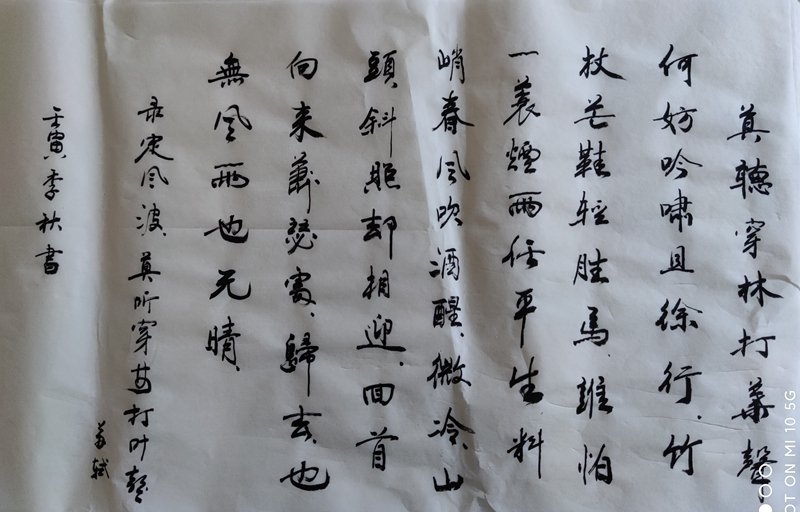 莫聽穿林打葉聲
何妨吟嘯且徐行、竹
杖芒鞋輕胜馬、誰怕
一蓑煙雨任平生、料
峭春风吹酒醒、微冷、山
頭斜照却相迎、回首
向来蕭瑟處、歸去、也
無风雨也无晴、
录定风波、莫听穿林打叶聲
苏轼
壬寅季秋書
OT ON MI 10 5G